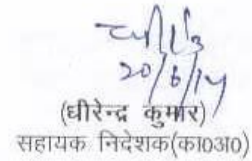 20/6/14
(धीरेन्द्र कुमार)
सहायक निदेशक(का0आ0)